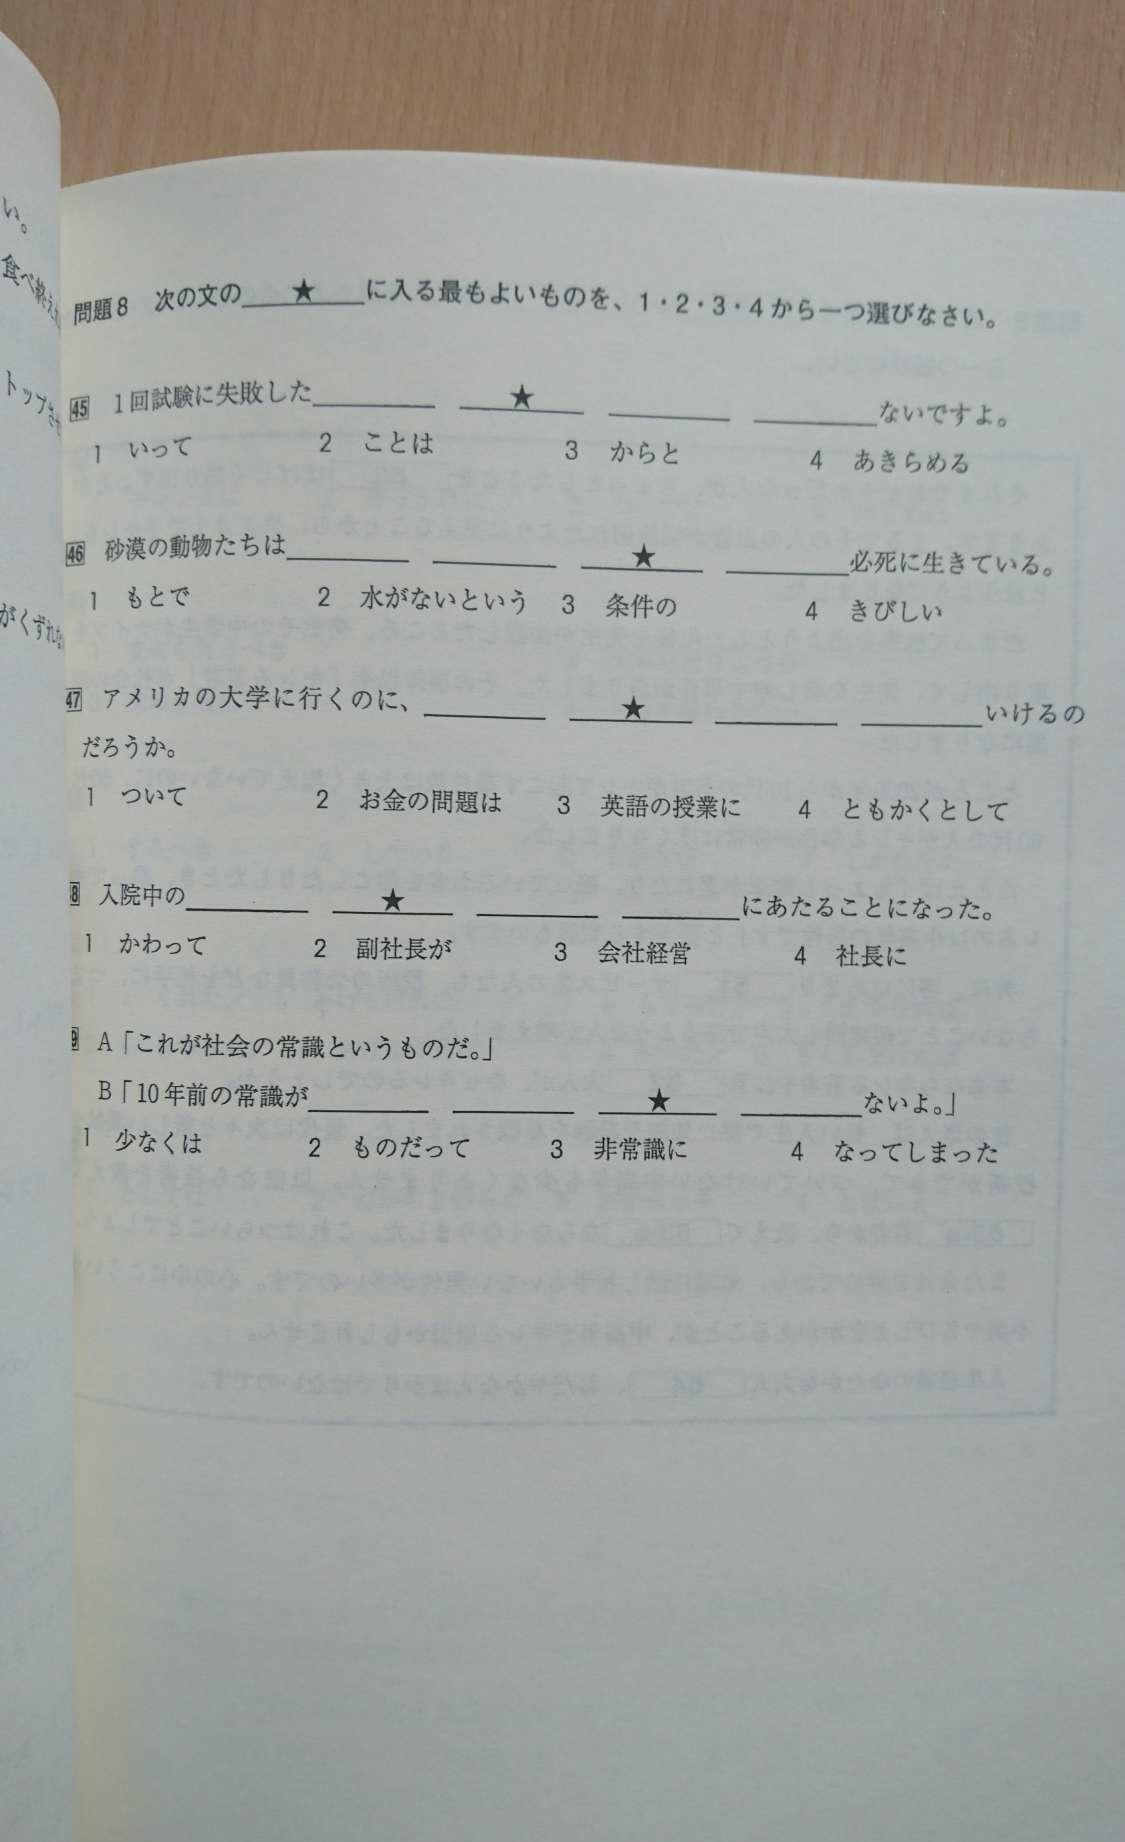 い。
食べ終え
トップさせ
がくずれな
問題8 次の文の＿＿★＿＿に入る最もよいものを、1・2・3・4から一つ選びなさい。
45 1回試験に失敗した＿＿＿＿ ＿＿★＿＿ ＿＿＿＿ ＿＿＿＿ないですよ。
1 いって 2 ことは 3 からと 4 あきらめる
46 砂漠の動物たちは＿＿＿＿ ＿＿＿＿ ＿＿★＿＿ ＿＿＿＿必死に生きている。
1 もとで 2 水がないという 3 条件の 4 きびしい
47 アメリカの大学に行くのに、＿＿＿＿ ＿＿★＿＿ ＿＿＿＿ ＿＿＿＿いけるの
だろうか。
1 ついて 2 お金の問題は 3 英語の授業に 4 ともかくとして
8 入院中の＿＿＿＿ ＿＿★＿＿ ＿＿＿＿ ＿＿＿＿にあたることになった。
1 かわって 2 副社長が 3 会社経営 4 社長に
9 A「これが社会の常識というものだ。」
B「10年前の常識が＿＿＿＿ ＿＿＿＿ ＿＿★＿＿ ＿＿＿＿ないよ。」
1 少なくは 2 ものだって 3 非常識に 4 なってしまった